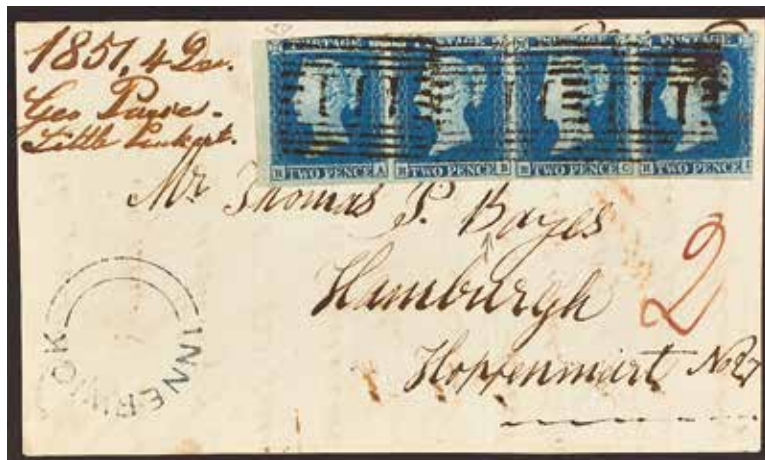 1851, 4 Dec.
Geo
Little
POSTAGE POSTAGE POSTAGE POSTAGE
TWO PENCE A TWO PENCE B TWO PENCE C TWO PENCE
Mr Thomas P. Bayes
Hamburgh
2
Hoppenmart No 27
INNERWICK